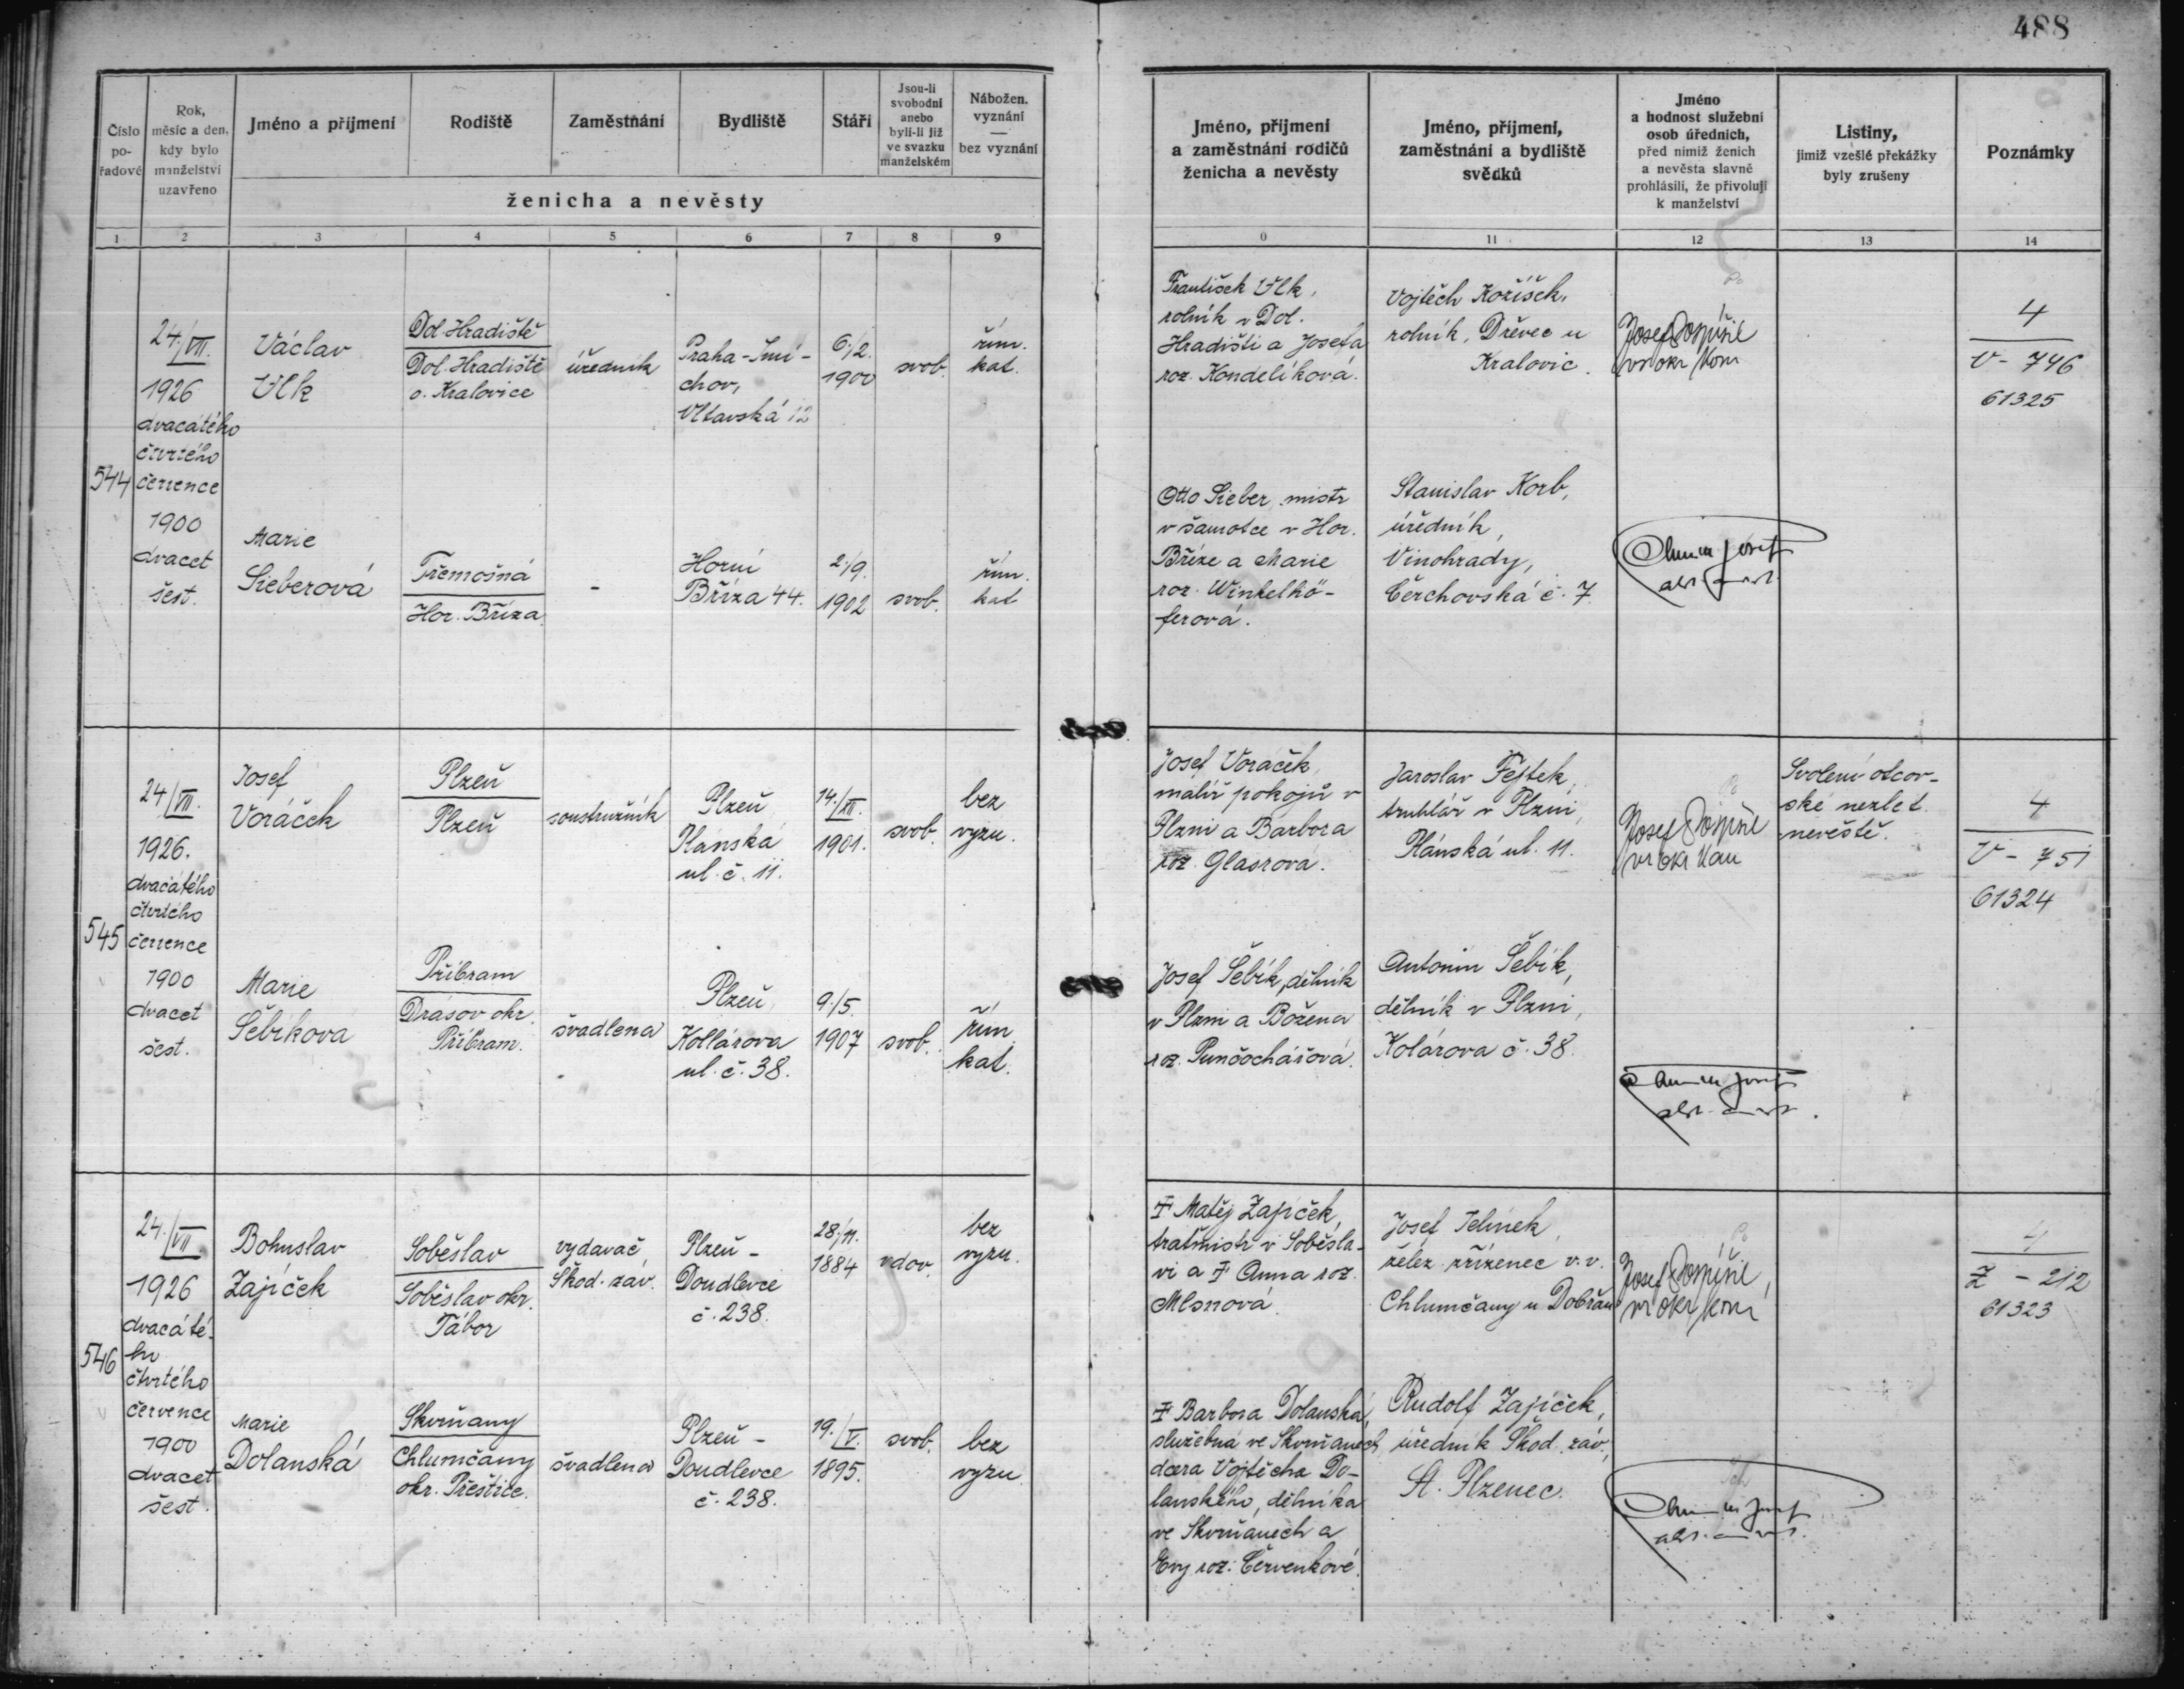 488
Číslo pořadové
Rok, měsíc a den, kdy bylo manželství uzavřeno
Jméno a příjmení
Rodiště
Zaměstnání
Bydliště
Stáří
Jsou-li svobodní anebo byli-li již ve svazku manželském
Nábožen. vyznání — bez vyznání
ženicha a nevěsty
Jméno, příjmení a zaměstnání rodičů ženicha a nevěsty
Jméno, příjmení, zaměstnání a bydliště svědků
Jméno a hodnost služební osob úředních, před nimiž ženich a nevěsta slavně prohlásili, že přivolují k manželství
Listiny, jimiž vzešlé překážky byly zrušeny
Poznámky
1 2 3 4 5 6 7 8 9 0 11 12 13 14
544
24./VII.
1926
dvacátého
čtvrtého
července
1900
dvacet
šest.
Václav
Vlk
Dol. Hradiště
Dol. Hradiště
o. Kralovice
úředník
Praha-Smí-
chov,
Vltavská 12
6./2.
1900
svob.
řím.
kat.
František Vlk,
rolník v Dol.
Hradišti a Josefa
roz. Kondelíková.
Vojtěch Kožíšek,
rolník, Dřevec u
Kralovic.
Josef Pospíšil
4
V - 746
61325
Marie
Sieberová
Třemošná
Hor. Bříza
-
Horní
Bříza 44.
2./9.
1902
svob.
řím.
kat
Otto Sieber, mistr
v šamotce v Hor.
Bříze a Marie
roz. Winkelhö-
ferová.
Stanislav Korb,
úředník,
Vinohrady,
Čerchovská č. 7.
545
24/VII.
1926.
dvacátého
čtvrtého
července
1900
dvacet
šest.
Josef
Voráček
Plzeň
Plzeň
soustružník
Plzeň
Plánská
ul. č. 11.
14./XII.
1901.
svob.
bez
vyzn.
Josef Voráček,
malíř pokojů v
Plzni a Barbora
roz. Glasrová.
Jaroslav Fejtek,
truhlář v Plzni,
Plánská ul. 11.
Josef Pospíšil
Svolení otcov-
ské nezlet.
nevěstě.
4
V - 751
61324
Marie
Šebíkova
Příbram
Drásov okr.
Příbram.
švadlena
Plzeň
Kollárova
ul. č. 38.
9./5.
1907
svob.
řím.
kat.
Josef Šebík, dělník
v Plzni a Božena
roz. Punčochářová.
Antonín Šebík,
dělník v Plzni,
Kolárova č. 38.
546
24./VII
1926
dvacáté-
ho
čtvrtého
července
1900
dvacet
šest.
Bohuslav
Zajíček
Soběslav
Soběslav okr.
Tábor
vydavač
Škod. záv.
Plzeň -
Doudlevce
č. 238.
28./11.
1884
vdov.
bez
vyzn.
† Matěj Zajíček,
traťmistr v Soběsla-
vi a † Anna roz.
Mlsnová.
Josef Jelínek,
želez. zřízenec v. v.
Chlumčany u Dobřan
Josef Pospíšil
4
Z - 212
61323
Marie
Dolanská
Skvrňany
Chlumčany
okr. Přeštice.
švadlena
Plzeň -
Doudlevce
č. 238.
19./V.
1895.
svob.
bez
vyzn
† Barbora Dolanská,
služebná ve Skvrňanech
dcera Vojtěcha Do-
lanského, dělníka
ve Skvrňanech a
Evy roz. Červenkové.
Rudolf Zajíček,
úředník Škod. záv,
St. Plzenec.